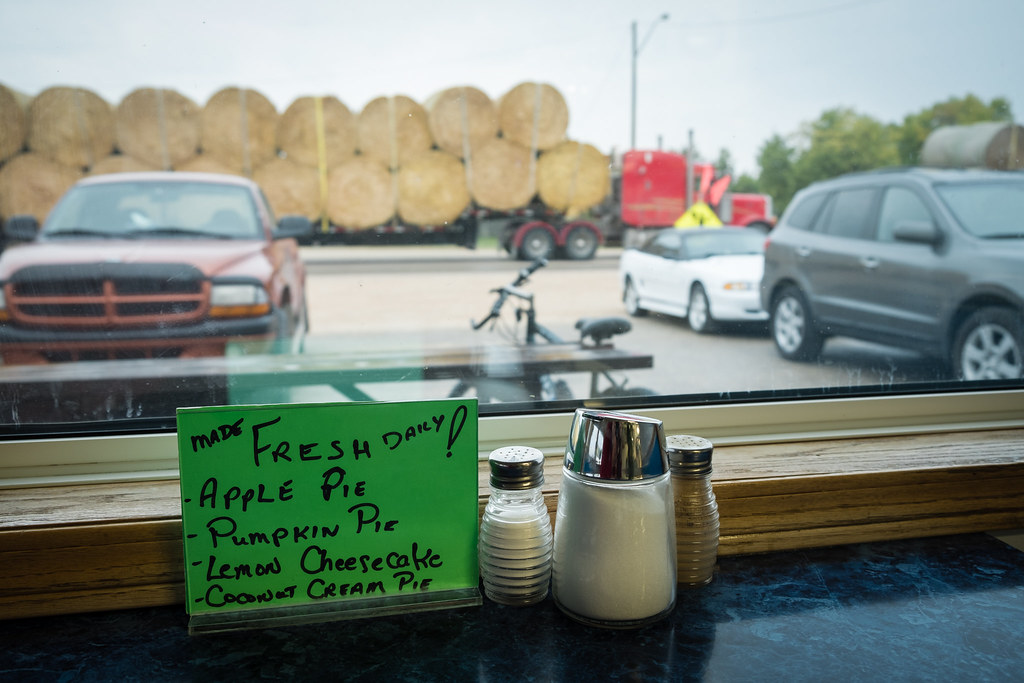 MADE FRESH DAILY!
- APPLE PIE
- PUMPKIN PIE
- LEMON CHEESECAKE
- COCONUT CREAM PIE